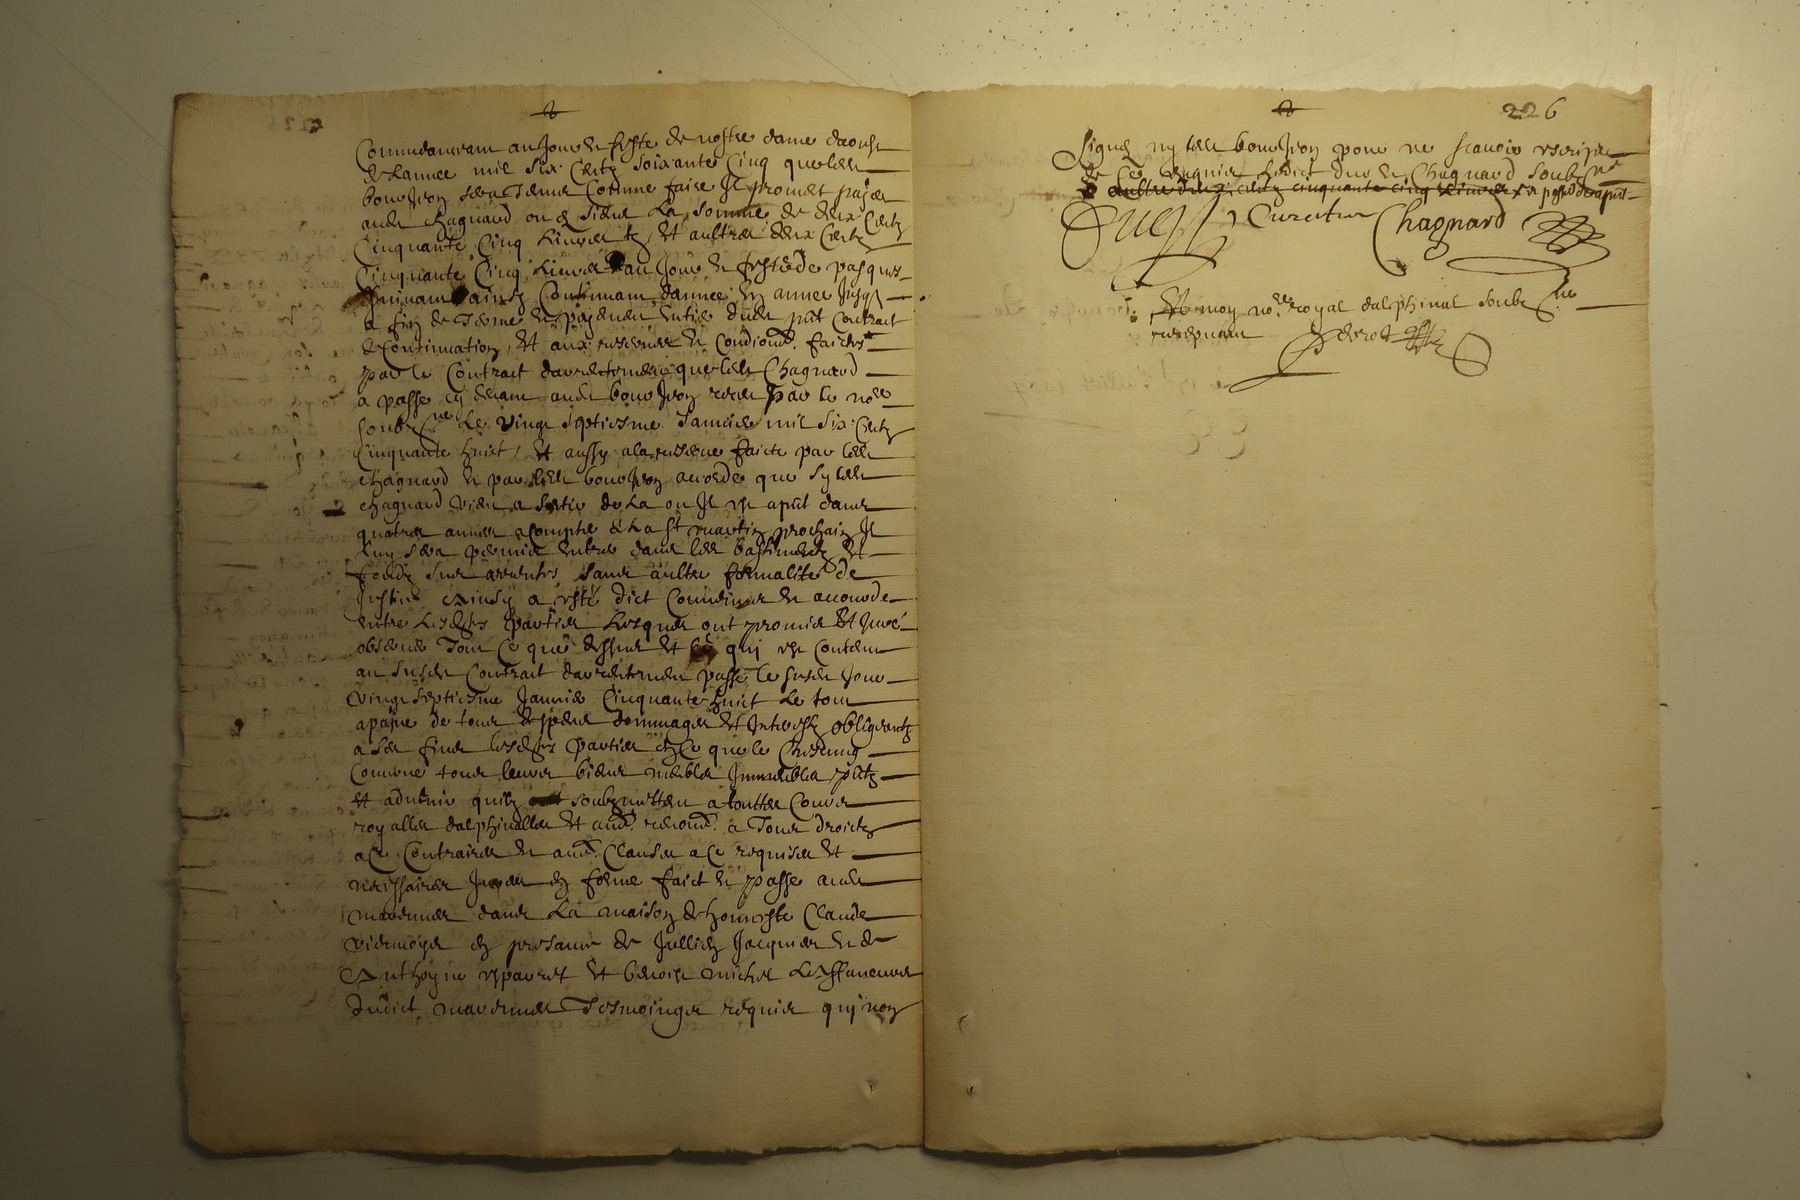 Commenceram au Jour et feste de nostre dame daoust
de lannee mil six Centz soixante Cinq que ledt
bouvJron sera Tenu Comme faire Il promet paÿer
audt Chagnard ou es siens La somme de deux Centz
Cinquante Cinq Livres tz, Et aultres deux Centz
Cinquante Cinq Livres au Jour et feste de pasques
suivam ainsy Continuam dannee en annee Jusqs
a fin de Terme et payement entier dudt pnt Contrait
de Continuation, Et aux reserves et Condions faictes
par le Contrait darrentement que ledt Chagnard
a passe cy devant audt bouvJron receu par le nore
soubzne Le vingt septiesme Janvier mil six Centz
Cinquante huict, Et aussy a la reserve faicte par ledt
Chagnard et par ledt bouvJron accorde que sy ledt
Chagnard vient a sortir de La ou Il est apnt dans
quatre annees a Compter de La st martin prochain Il
Luy sera permis entrer dans les bastimentz Et
fondz sus arrentes sans aultre formalite de
Justice Ainsy a esté dict Convenu et accorde
entre Lesdes parties Lesquels ont promis Et Juré
observer Tout Ce que dessus Et qui est Contenu
au susdt Contrait darrentement passé le susdt Jour
vingt septiesme Janvier Cinquante huict Le tout
a paine de tous despens dommages Et Interestz obligeantz
a Ses fins lesdes parties en Ce que le Chascung
Concerne tous leurs biens meubles Immeubles pntz
Et advenir quilz ont soubzmetteu a touttes Cours
royalles dalphinalles Et aues renons a Tous droictz
a Ce Contraires et aues Clauses a Ce requises Et
necessaires Jures en forme faict et passe audt
marennes dans La maison de honneste Claude
viermoÿs en presance de Jullien Jacquier et de
Anthoyne esparret Et benoist michel Laffaneurs
dudict marennes Tesmoings requis quj non
226
Signes ny ledt bouvJron pour ne scavoir escripre
de Ce enquis Ledict duc et Chagnard soubzne
aultre deux centz cinquante cinq Livres
Curateur Chagnard
Et moy nore royal dalphinal soubzne
recepvant